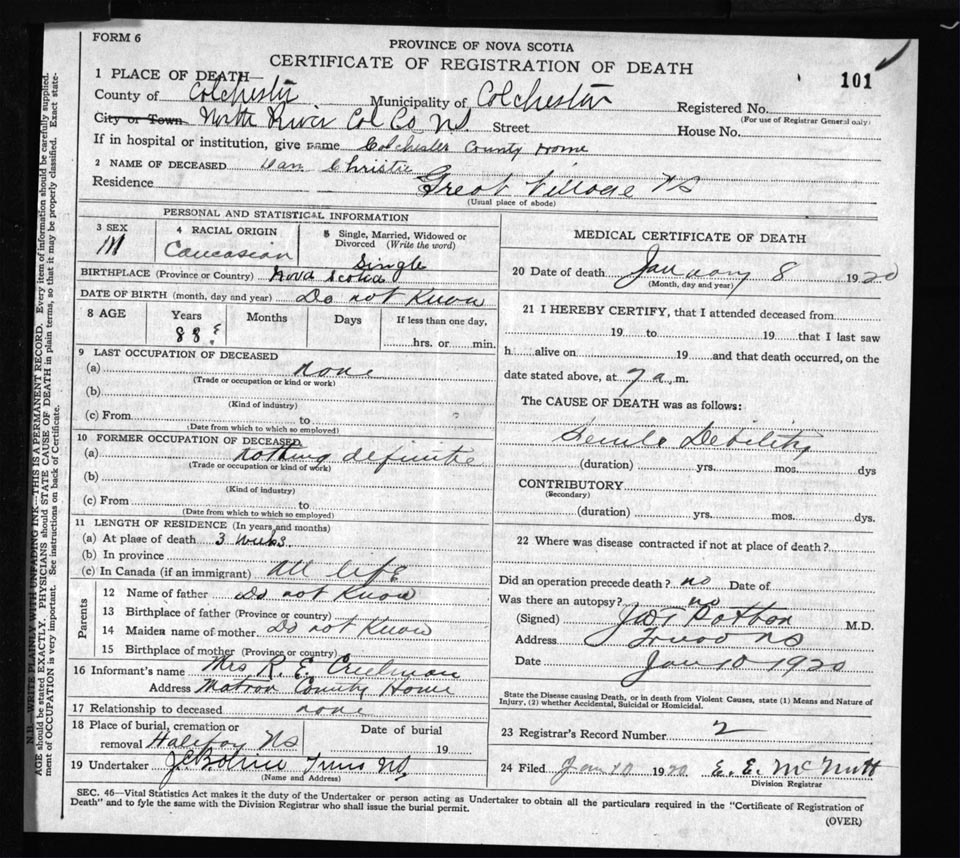 FORM 6
PROVINCE OF NOVA SCOTIA
CERTIFICATE OF REGISTRATION OF DEATH
101
1 PLACE OF DEATH—
County of Colchester Municipality of Colchester Registered No.
(For use of Registrar General only)
City or Town North River Col Co NS. Street House No.
If in hospital or institution, give name Colchester County Home
2 NAME OF DECEASED Dan Christie
Residence Great Village NS
(Usual place of abode)
PERSONAL AND STATISTICAL INFORMATION
3 SEX M
4 RACIAL ORIGIN Caucasian
5 Single, Married, Widowed or Divorced (Write the word) Single
BIRTHPLACE (Province or Country) Nova Scotia
DATE OF BIRTH (month, day and year) Do not Know
8 AGE Years Months Days If less than one day,
88 ? hrs. or min.
9 LAST OCCUPATION OF DECEASED
(a) none
(Trade or occupation or kind or work)
(b)
(Kind of industry)
(c) From to
(Date from which to which so employed)
10 FORMER OCCUPATION OF DECEASED
(a) nothing definite
(Trade or occupation or kind of work)
(b)
(Kind of industry)
(c) From to
(Date from which to which so employed)
11 LENGTH OF RESIDENCE (In years and months)
(a) At place of death 3 weeks
(b) In province
(c) In Canada (if an immigrant) all life
Parents
12 Name of father Do not Know
13 Birthplace of father (Province or country)
14 Maiden name of mother Do not Know
15 Birthplace of mother (Province or country)
16 Informant's name Mrs R. E. Creelman
Address Matron County Home
17 Relationship to deceased none
18 Place of burial, cremation or Date of burial
removal Halifax NS 19
19 Undertaker Truro NS
(Name and Address)
MEDICAL CERTIFICATE OF DEATH
20 Date of death January 8 1920
(Month, day and year)
21 I HEREBY CERTIFY, that I attended deceased from
19 to 19 that I last saw
h alive on 19 and that death occurred, on the
date stated above, at 7 a. m.
The CAUSE OF DEATH was as follows:
Senile Debility
(duration) yrs. mos. dys
CONTRIBUTORY
(Secondary)
(duration) yrs. mos. dys.
22 Where was disease contracted if not at place of death?
Did an operation precede death? no Date of
Was there an autopsy? no
(Signed) M.D.
Address Truro NS
Date Jan 10 1920
State the Disease causing Death, or in death from Violent Causes, state (1) Means and Nature of
Injury, (2) whether Accidental, Suicidal or Homicidal.
23 Registrar's Record Number 2
24 Filed Jan 10 1920 E. E. McNutt
Division Registrar
SEC. 46—Vital Statistics Act makes it the duty of the Undertaker or person acting as Undertaker to obtain all the particulars required in the "Certificate of Registration of
Death" and to fyle the same with the Division Registrar who shall issue the burial permit.
(OVER)
N.B.—WRITE PLAINLY WITH UNFADING INK—THIS IS A PERMANENT RECORD. Every item of information should be carefully supplied.
AGE should be stated EXACTLY. PHYSICIANS should STATE CAUSE OF DEATH in plain terms, so that it may be properly classified. Exact state-
ment of OCCUPATION is very important. See instructions on back of Certificate.